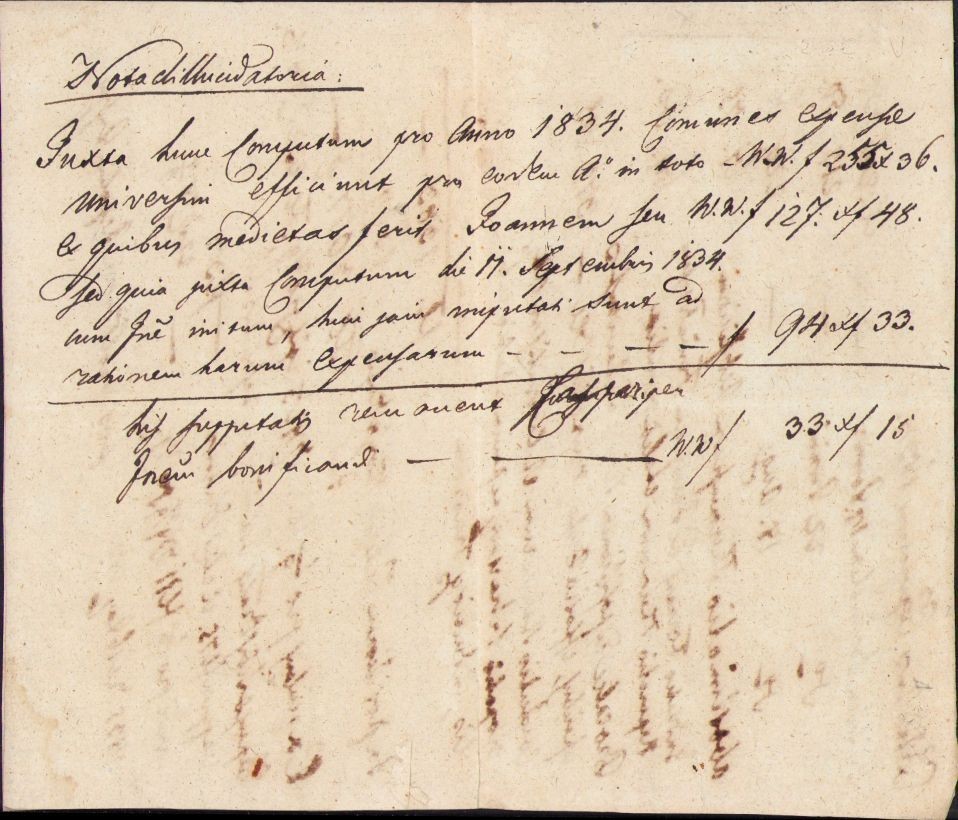 Nota dilucidatoria:
Juxta hunc Computum pro Anno 1834. Comunes expensae
universim efficiunt pro eodem Ao. in toto - W.W. f 255 xf 36.
Ex quibus medietas ferit Joannem seu W.W. f 127. xf 48.
Sed quia juxta Computum die 11. Septembris 1834.
cum Jnē initum, huic jam imputati sunt ad
rationem harum expensarum - - - - f 94 xf 33.
his supputatis remanent
bonificandi - — W.W f 33 xf 15